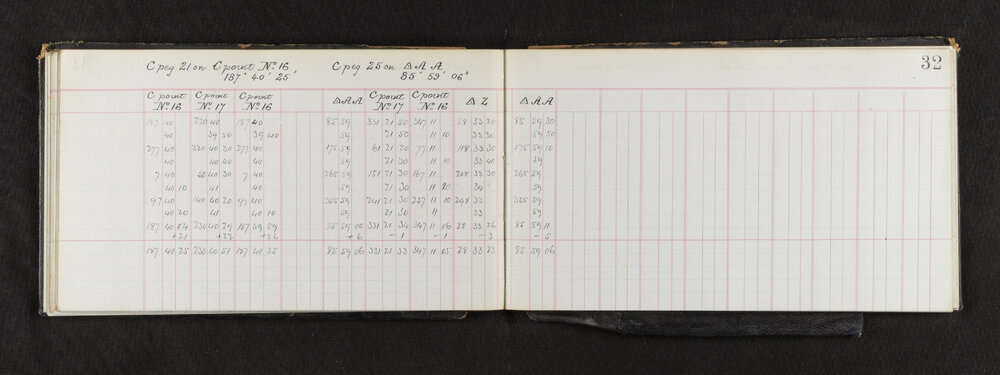 32
C peg 21 on C point No 16 C peg 25 on Δ A A
187° 40' 25" 85° 59' 06"
C point C point C point Δ A A C point C point Δ Z Δ A A
No 16 No 17 No 16 No 17 No 16
187 40 230 40 187 40 85 59 331 21 50 347 11 28 33 20 85 59 30
40 39 50 39 40 59 21 50 11 10 33 30 59
277 40 320 40 30 277 40 175 59 61 21 20 77 11 118 33 30 175 59 10
40 40 40 40 59 21 30 11 10 33 40 59
7 40 50 40 30 7 40 265 59 151 21 30 167 11 208 33 30 265 59
40 10 41 40 59 21 30 11 20 34 59
97 40 140 40 20 97 40 355 59 241 21 30 257 11 10 298 33 355 59
40 20 41 40 10 59 21 30 11 33 59
187 40 04 230 40 29 187 39 59 85 59 00 331 21 34 347 11 16 28 33 26 85 59 11
+21 +22 +26 +6 -1 -1 -3 -5
187 40 25 230 40 51 187 40 25 85 59 06 331 21 33 347 11 15 28 33 23 85 59 06